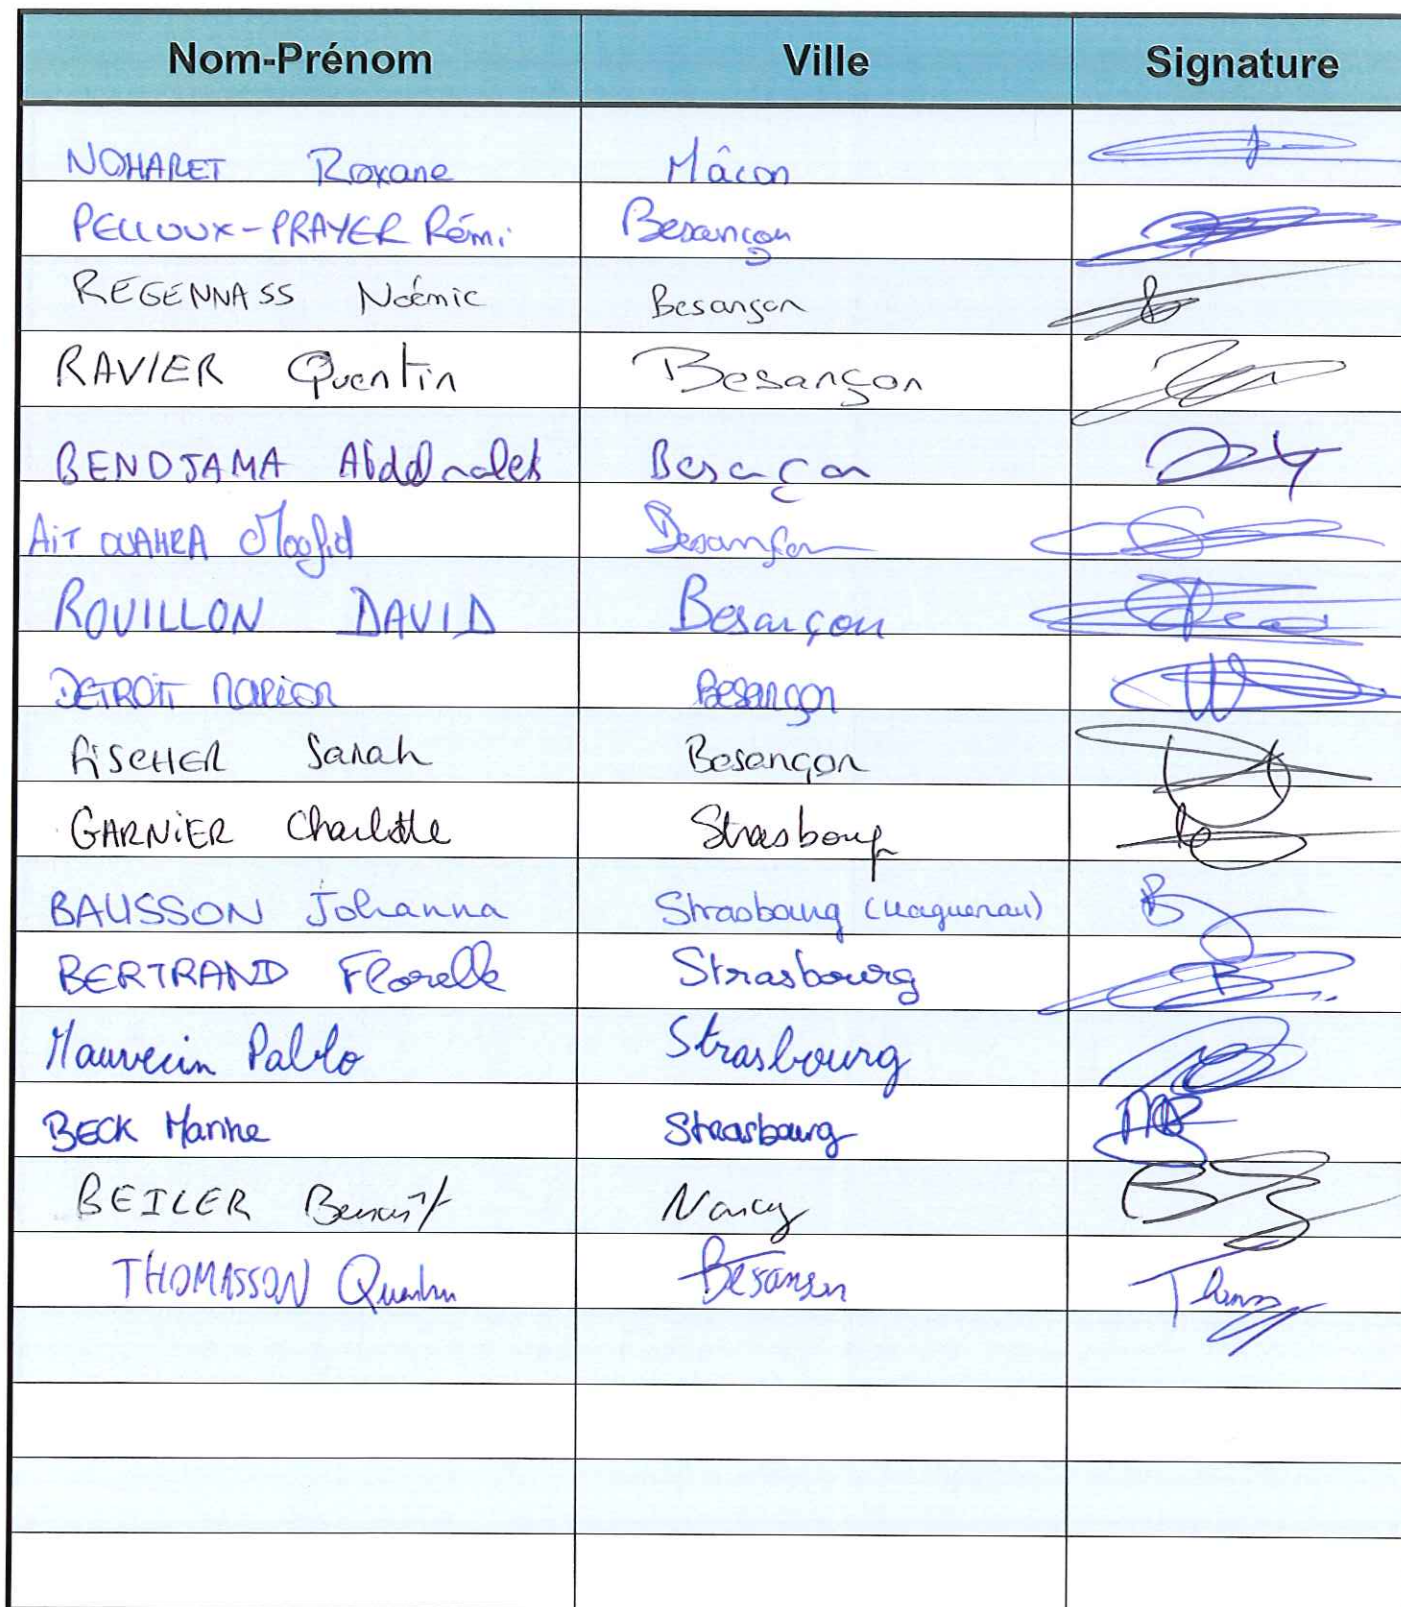 Nom-Prénom Ville Signature
NOHARET Roxane Mâcon
PELLOUX-PRAYER Rémi Besançon
REGENNASS Noémie Besançon
RAVIER Quentin Besançon
BENDJAMA Abdelmalek Besançon
AiT OUAHRA Besançon
ROUILLON DAVID Besançon
DETROiT Marion Besançon
FiSCHER Sarah Besançon
GARNiER Charlotte Strasbourg
BAUSSON Johanna Strasbourg (Haguenau)
BERTRAND Florelle Strasbourg
Mauvecin Pablo Strasbourg
BECK Marine Strasbourg
BEILER Benoît Nancy
THOMASSON Quentin Besançon